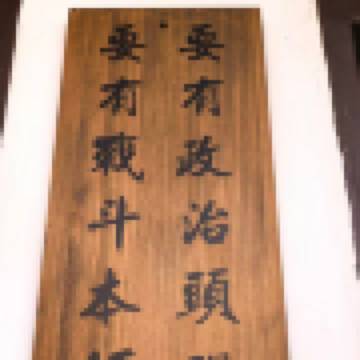 要有政治頭
要有戰斗本